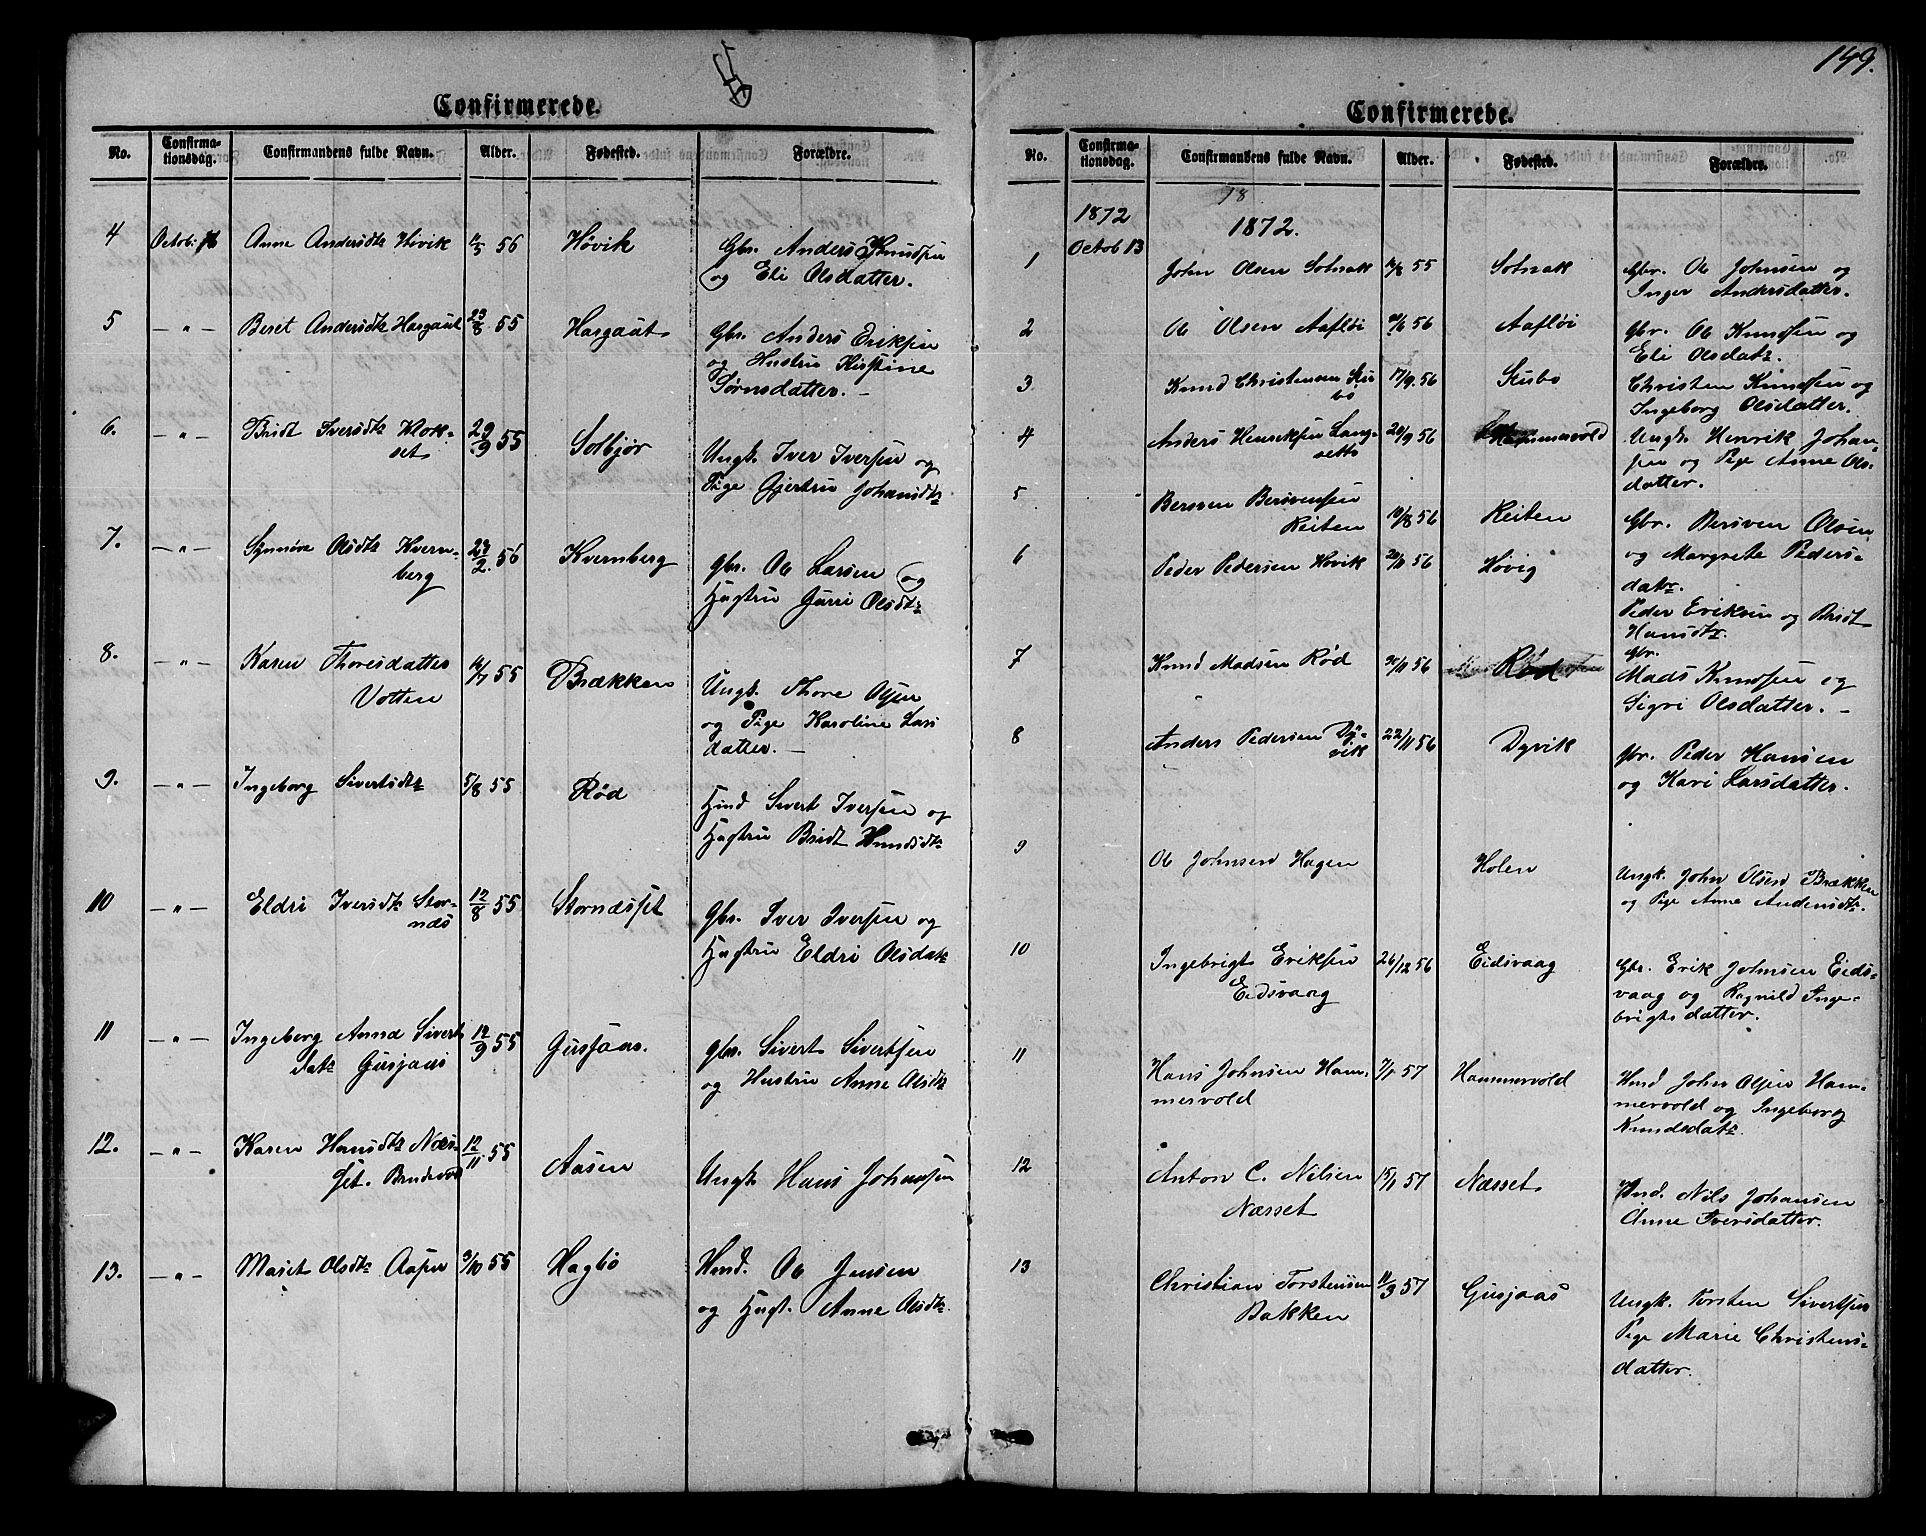 Confirmerede.
No. Confirmationsdag. Confirmandens fulde Navn. Alder. Fødested. Forældre.
4 Octob: 16 Anne Andersdtr Høvik 56 Høvik Gbr. Anders Knudsen
og Eli Olsdatter.
5 — " — Beret Andersdtr Hargaut 23/8 55 Hargaut Gbr. Anders Eriksen
og Hustru Kirstine
Sørnsdatter. —
6. — " — Bridt Iversdtr Klok-
set 29/9 55 Solbjør Ungk. Iver Iversen og
Pige Gjertru Johansdtr
7. — " — Synnøve Olsdtr Kvern-
berg 28/2 56 Kvernberg Gbr. Ole Larsen og
Hustru Gurri Olsdtr
8. — " — Karen Thoresdatter
Votten 55 Brækken Ungk. Thore Olsen
og Pige Karoline Lars
datter. —
9. — " — Ingeborg Sivertsdtr 5/8 55 Rød Hmd Sivert Iversen og
Hustru Bridt Knudsdtr
10 — " — Eldri Iversdtr Stor-
næs 12/8 55 Stornæsset Gbr. Iver Iversen og
Hustru Eldri Olsdatr
11 — " — Ingeborg Anna Siverts
datr Gusjaas 12/9 55 Gusjaas. Gbr. Sivert Sivertsen
og Hustru Anne Olsdtr
12. — " — Karen Hansdtr Næs-
set. 12/11 55 Aasen Ungk Hans Johansen
13. — " — Marit Olsdtr Aasen 3/10 55 Hagbø Hmd. Ole Jensen
og Hust. Anne Olsdtr.
149.
Confirmerede.
No. Confirmationsdag. Confirmandens fulde Navn. Alder. Fødested. Forældre.
18
1872 1872.
1 Octob 13 John Olsen Solnak 55 Solnak Gbr. Ole Johnsen og
Inger Andersdatter.
2 Ole Olsen Aafløi 56 Aafløi Gbr. Ole Knudsen og
Eli Olsdatr.
3 Knud Christensen Stu
bø 17/9 56 Stubø Christen Knudsen og
Ingeborg Olsdatter.
4 Anders Henriksen Lang-
sette 20/9 56 Hammervold Ungk. Henrik Johan
sen og Pige Anne Ols-
datter.
5 Bersven Bersvensen
Reiten 10/8 56 Reiten Gbr. Bersven Olsen
og Margrete Peders-
datr.
6 Peder Pedersen Høvik 20/11 56 Høvig Peder Eriksen og Bridt
Hansdtr.
7 Knud Madsen Rød 30/11 56 Rød Gbr.
Mads Knudsen og
Sigri Olsdatter. —
8 Anders Pedersen Dy-
vik 22/11 56 Dyvik Gbr. Peder Hansen
og Kari Larsdatter.
9 Ole Johnsen Hagen Holen Ungk. John Olsen Brækken
og Pige Anne Andersdtr.
10 Ingebrigt Eriksen
Eidsvaag 26/12 56 Eidsvaag Gbr. Erik Johnsen Eids-
vaag og Ragnild Inge-
brigtsdatter.
11 Hans Johnsen Ham-
mervold 7/1 57 Hammervold Hmd John Olsen Ham-
mervold og Ingeborg
Knudsdatr.
12 Anton C. Nilsen
Næsset 15/1 57 Næsset Hmd. Nils Johansen
Anne Iversdatter.
13 Christian Torstensen
Bakken 11/3 57 Gusjaas Ungk. Torsten Sivertsen
Pige Marie Christens-
datter.